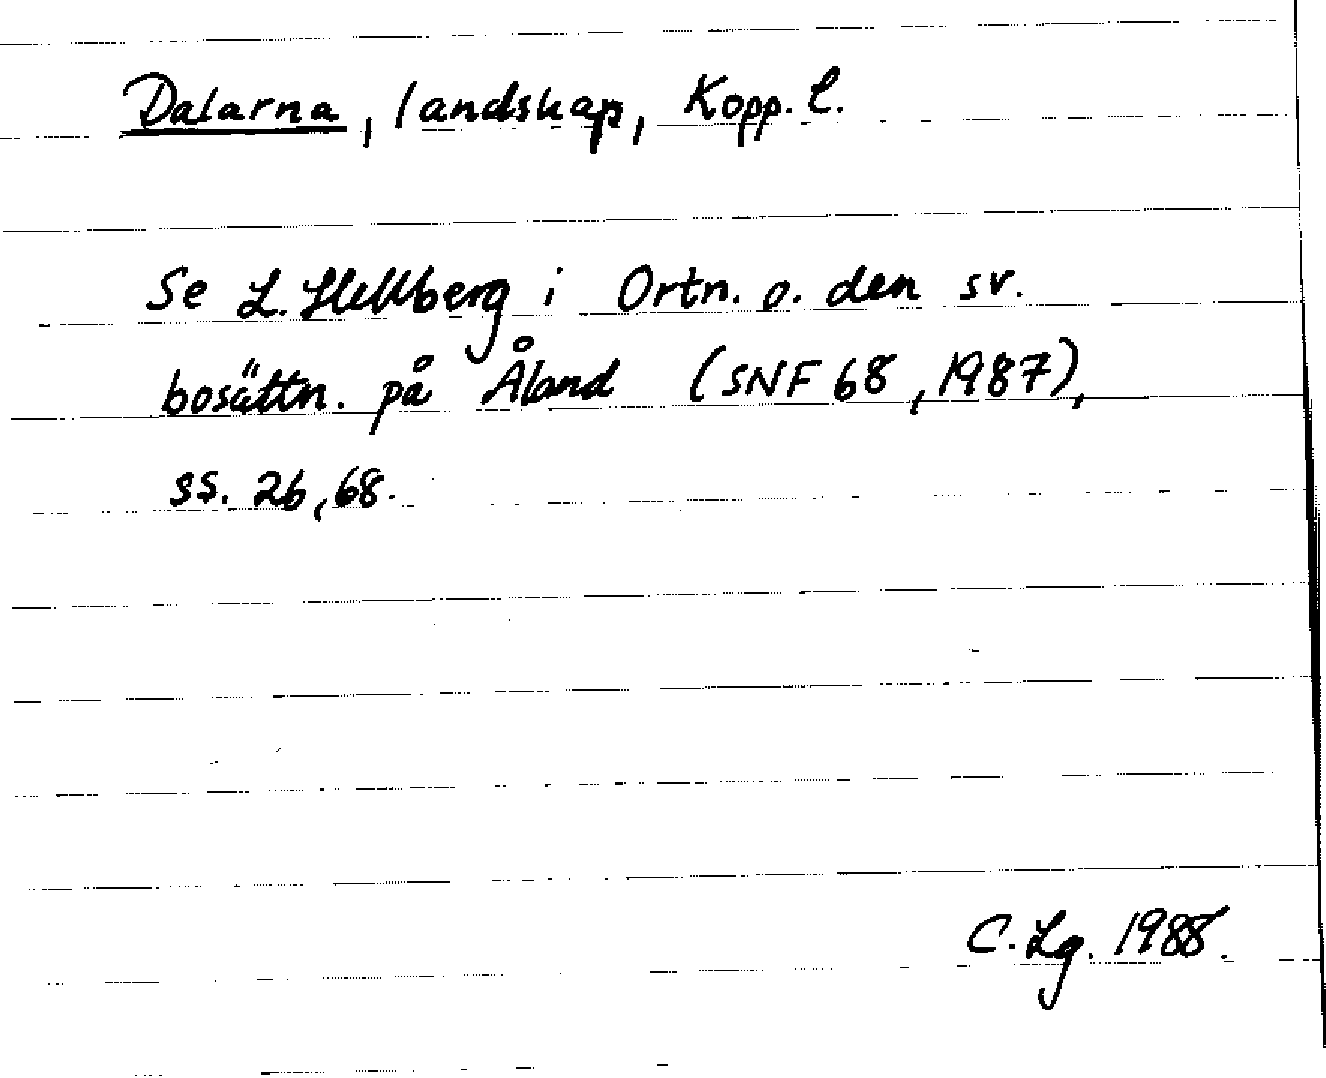 Dalarna, landskap, Kopp. l.
Se L. Hellberg i Ortn. o. den sv.
bosättn. på Åland (SNF 68, 1987),
ss. 26, 68.
C. Lg. 1988.